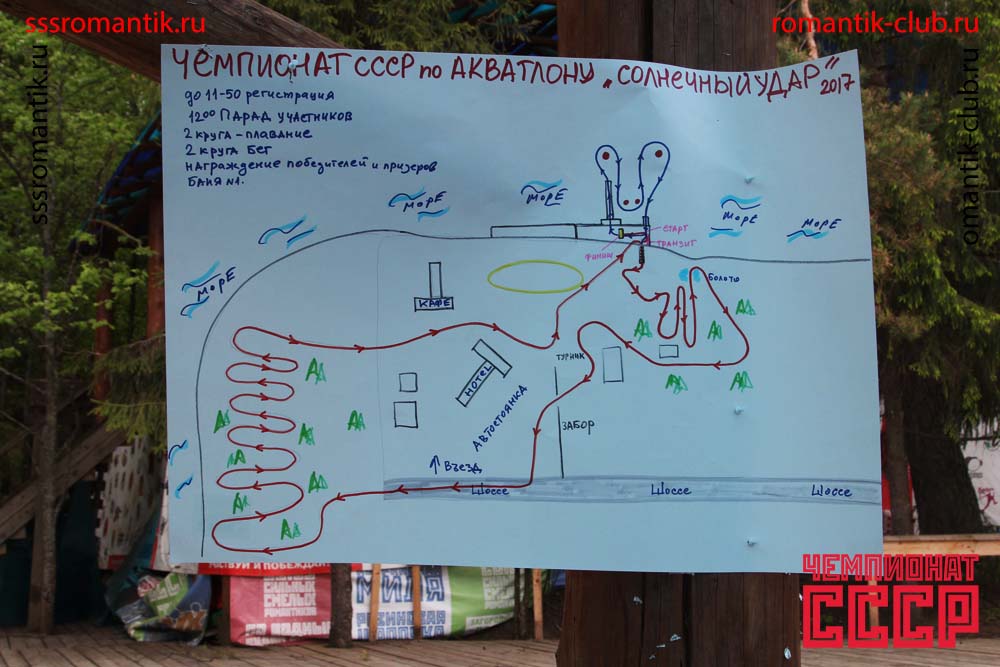 sssromantik.ru
romantik-club.ru
sssromantik.ru
romantik-club.ru
ЧЕМПИОНАТ СССР по АКВАТЛОНУ „СОЛНЕЧНЫЙ УДАР" 2017
до 11-50 регистрация
12⁰⁰ ПАРАД УЧАСТНИКОВ
2 круга - плавание
2 круга БЕГ
НАГРАЖДЕНИЕ ПОБЕДИТЕЛЕЙ И ПРИЗЕРОВ
БАНЯ №1.
МОРЕ
МОРЕ
МОРЕ
МОРЕ
МОРЕ
СТАРТ
ТРАНЗИТ
ФИНИШ
БОЛОТО
КАФЕ
HOTEL
ТУРНИК
АВТОСТОЯНКА
ЗАБОР
Въезд
Шоссе
Шоссе
Шоссе
СИЛЬНЫХ
СМЕЛЫХ
РОМАНТИКОВ
МИЛЯ
ЧЕМПИОНАТ
СССР